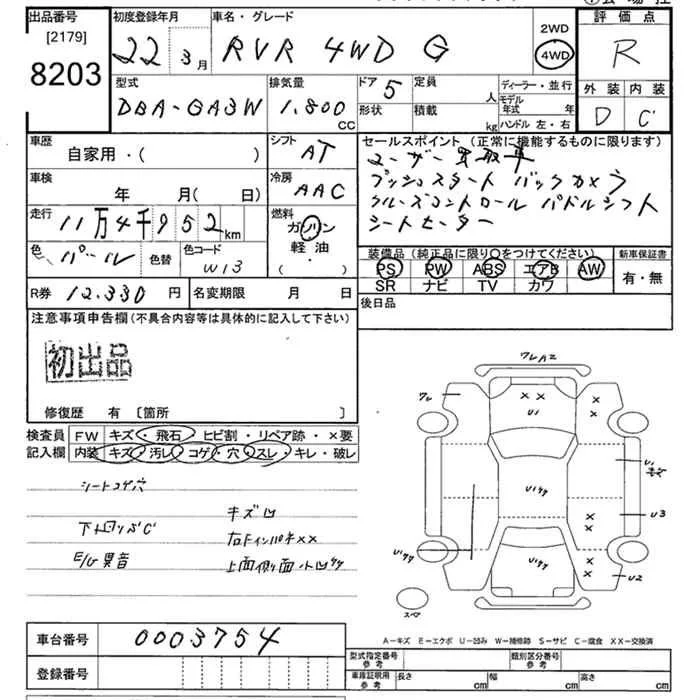 出品番号
[2179]
8203
初度登録年月
22年 3月
車名・グレード
RVR 4WD G
2WD
4WD
評価点
R
外装 内装
D C
型式
DBA-GA3W
排気量
1,800 CC
ドア 5
形状
定員 人
積載 kg
ディーラー・並行
モデル年式 年
ハンドル 左・右
車歴
自家用・( )
シフト
AT
車検
年 月(日)
冷房
AAC
走行
11万4千952km
燃料
ガソリン
軽油
( ・ )
色 パール
色替
色コード
W13
R券 12,330円
名変期限 月 日
セールスポイント(正常に機能するものに限ります)
ユーザー買取車
プッシュスタート バックカメラ
クルーズコントロール パドルシフト
シートヒーター
装備品(純正品に限り〇をつけてください)
PS PW ABS エアB AW
SR ナビ TV カワ
新車保証書
有・無
後日品
注意事項申告欄(不具合内容等は具体的に記入して下さい)
初出品
修復歴 有 〔箇所 〕
検査員記入欄
FW キズ・飛石・ヒビ割・リペア跡・×要
内装 キズ・汚レ・コゲ・穴・スレ・キレ・破レ
シートコゲ穴
キズ凹
下回りサビC
E/G異音
ワレA2
U1
U3
U2
スペア
車台番号
0003754
登録番号
A-キズ E-エクボ U-凹み W-補修跡 S-サビ C-腐食 XX-交換済
型式指定番号 参考
類別区分番号 参考
車庫証明用 参考
長さ cm
幅 cm
高さ cm